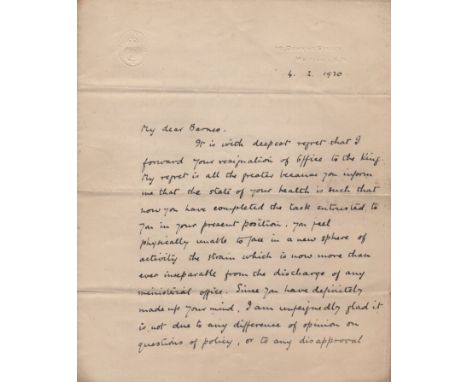 10, Downing Street,
Whitehall, S.W.
4. 2. 1920
My dear Barnes.
It is with deepest regret that I
forward your resignation of Office to the King.
My regret is all the greater because you inform
me that the state of your health is such that
now you have completed the task entrusted to
you in your present position, you feel
physically unable to face in a new sphere of
activity the strain which is now more than
ever inseparable from the discharge of any
ministerial office. Since you have definitely
made up your mind, I am unfeignedly glad it
is not due to any difference of opinion on
questions of policy, or to any disapproval